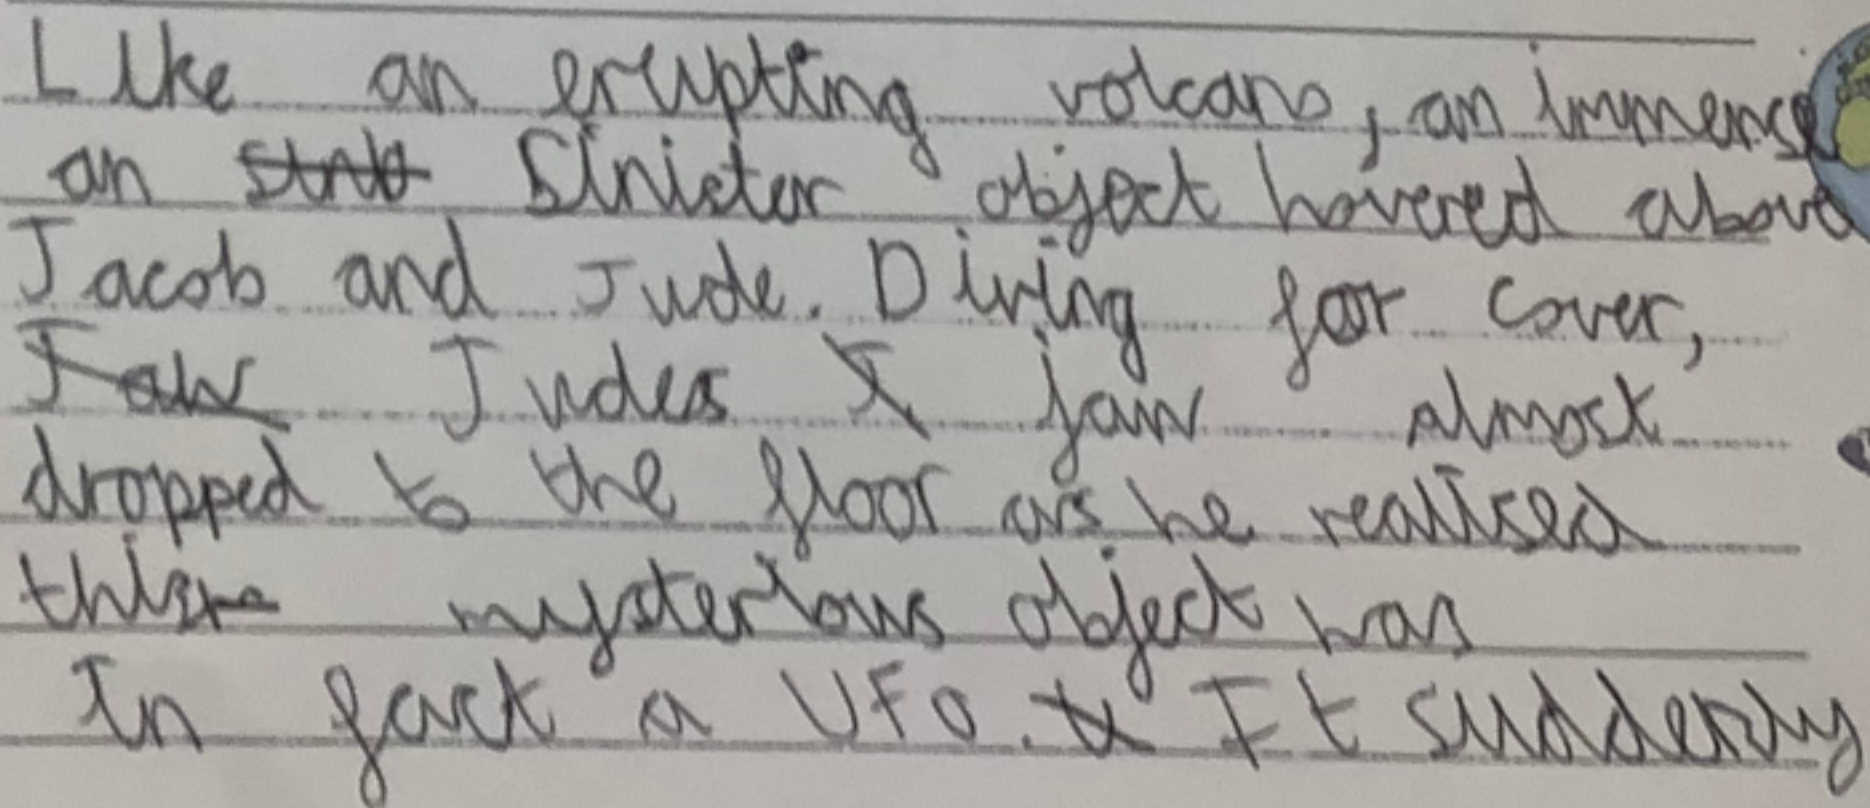 Like an erupting volcano, an immense
an Sinister object hovered above
Jacob and Jude. Diving for cover,
Jaw Judes jaw almost
dropped to the floor as he realised
this mysterious object was
In fact a UFO. It suddenly